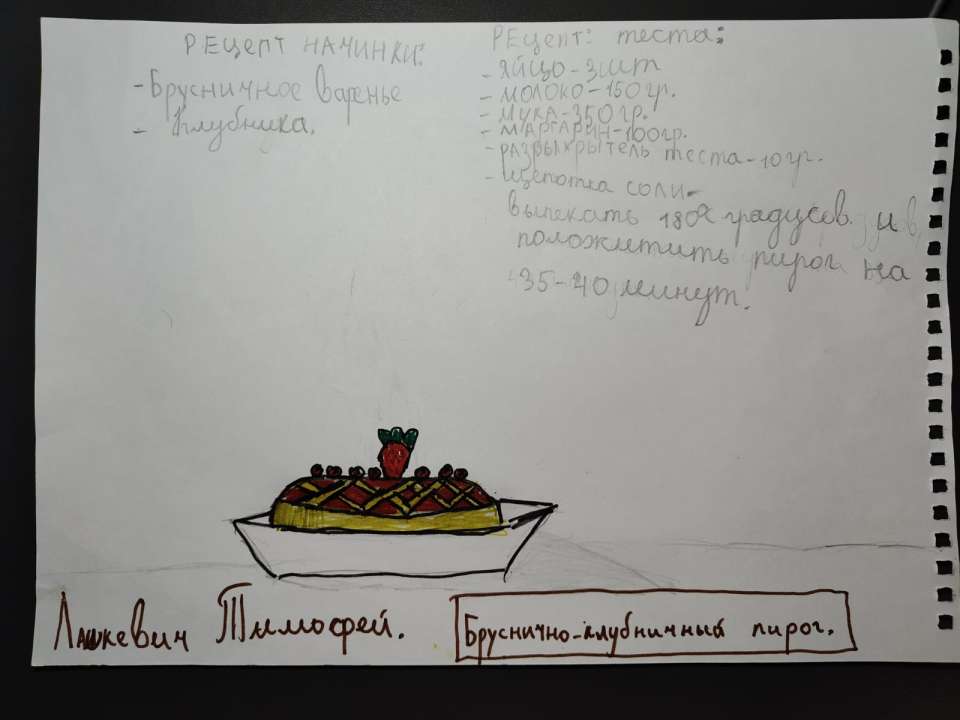 РЕцепт НАЧИНКи:
- Брусничное варенье
- Клубника.
РЕцепт: теста:
- яйцо - 3шт
- молоко - 150гр.
- мука - 350гр.
- МАРГАРИН - 100гр.
- разрыхрытель теста - 10гр.
- щепотка соли -
выпекать 180 градусов. и
положитить пирог на
35-40 минут.
Лашкевич Тимофей.
Бруснично-клубничный пирог.